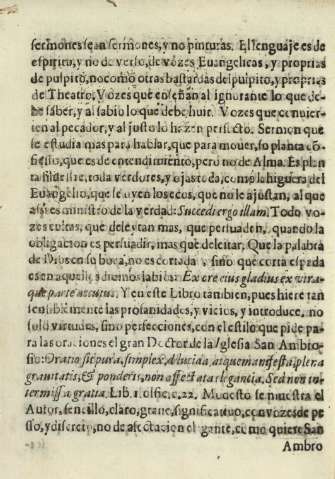 sermones sean sermones, y no pinturas. El lenguaje es de
espiritu, y no de verso, de vozes Euangelicas, y proprias
de pulpito, no como otras bastardas del pulpito, y proprias
de Theatro. Vozes que enseñan al ignorante lo que de-
be saber, y al sabio lo que debe huir. Vozes que conuier-
ten al pecador, y al justo lo hazen perfecto. Sermon que
se estudia mas para hablar, que para mouer, so planta co-
fiesso, que es de entendimiento, pero no de Alma. Es plan
ta silbestre, toda verdures, y ojasteda, como la higuera del
Euangelio, que se oyen los ecos, que no le ajustan, al que
assi es ministro de la verdad: Succedi ergo illam. Todo vo
zes cultas, que deleytan mas, que persuaden, quando la
obligacion es persuadir, mas que deleitar. Que la palabra
de Dios en su boca, no es cortada, sino que corta espada
es en aquellos diuinos labios: Ex ore eius gladius ex vtra-
que parte accutus. Y en este Libro tambien, pues hiere tan
sensiblemente las profanidades, y vicios, y introduce, no
solo virtudes, sino perfecciones, con el estilo que pide pa-
ra las oraciones el gran Doctor de la Iglesia San Ambro-
sio: Oratio sit pura, simplex, dilucida, atque manifesta, plena
grauitatis, & ponderis, non affectata elegancia, Sed non in-
termissa gratia. Lib. 1. offic. c. 22. Muestrase muestra el
Autor, sencillo, claro, graue, significatiuo, con vozes de pe-
sso, y discreto, no de afectacion elegante, como quiere San
Ambro